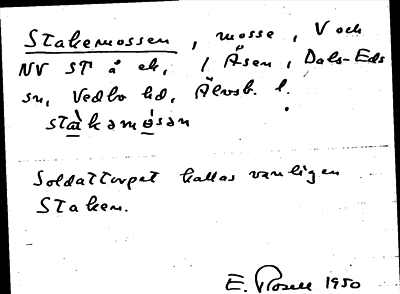 Stakemossen, mosse, V och
NV ST å ek, 1 Åsen, Dals-Eds
sn, Vedbo hd, Älvsb. l.
stàkamósən
Soldattorpet kallas vanligen
Staken.
E. Rosell 1950